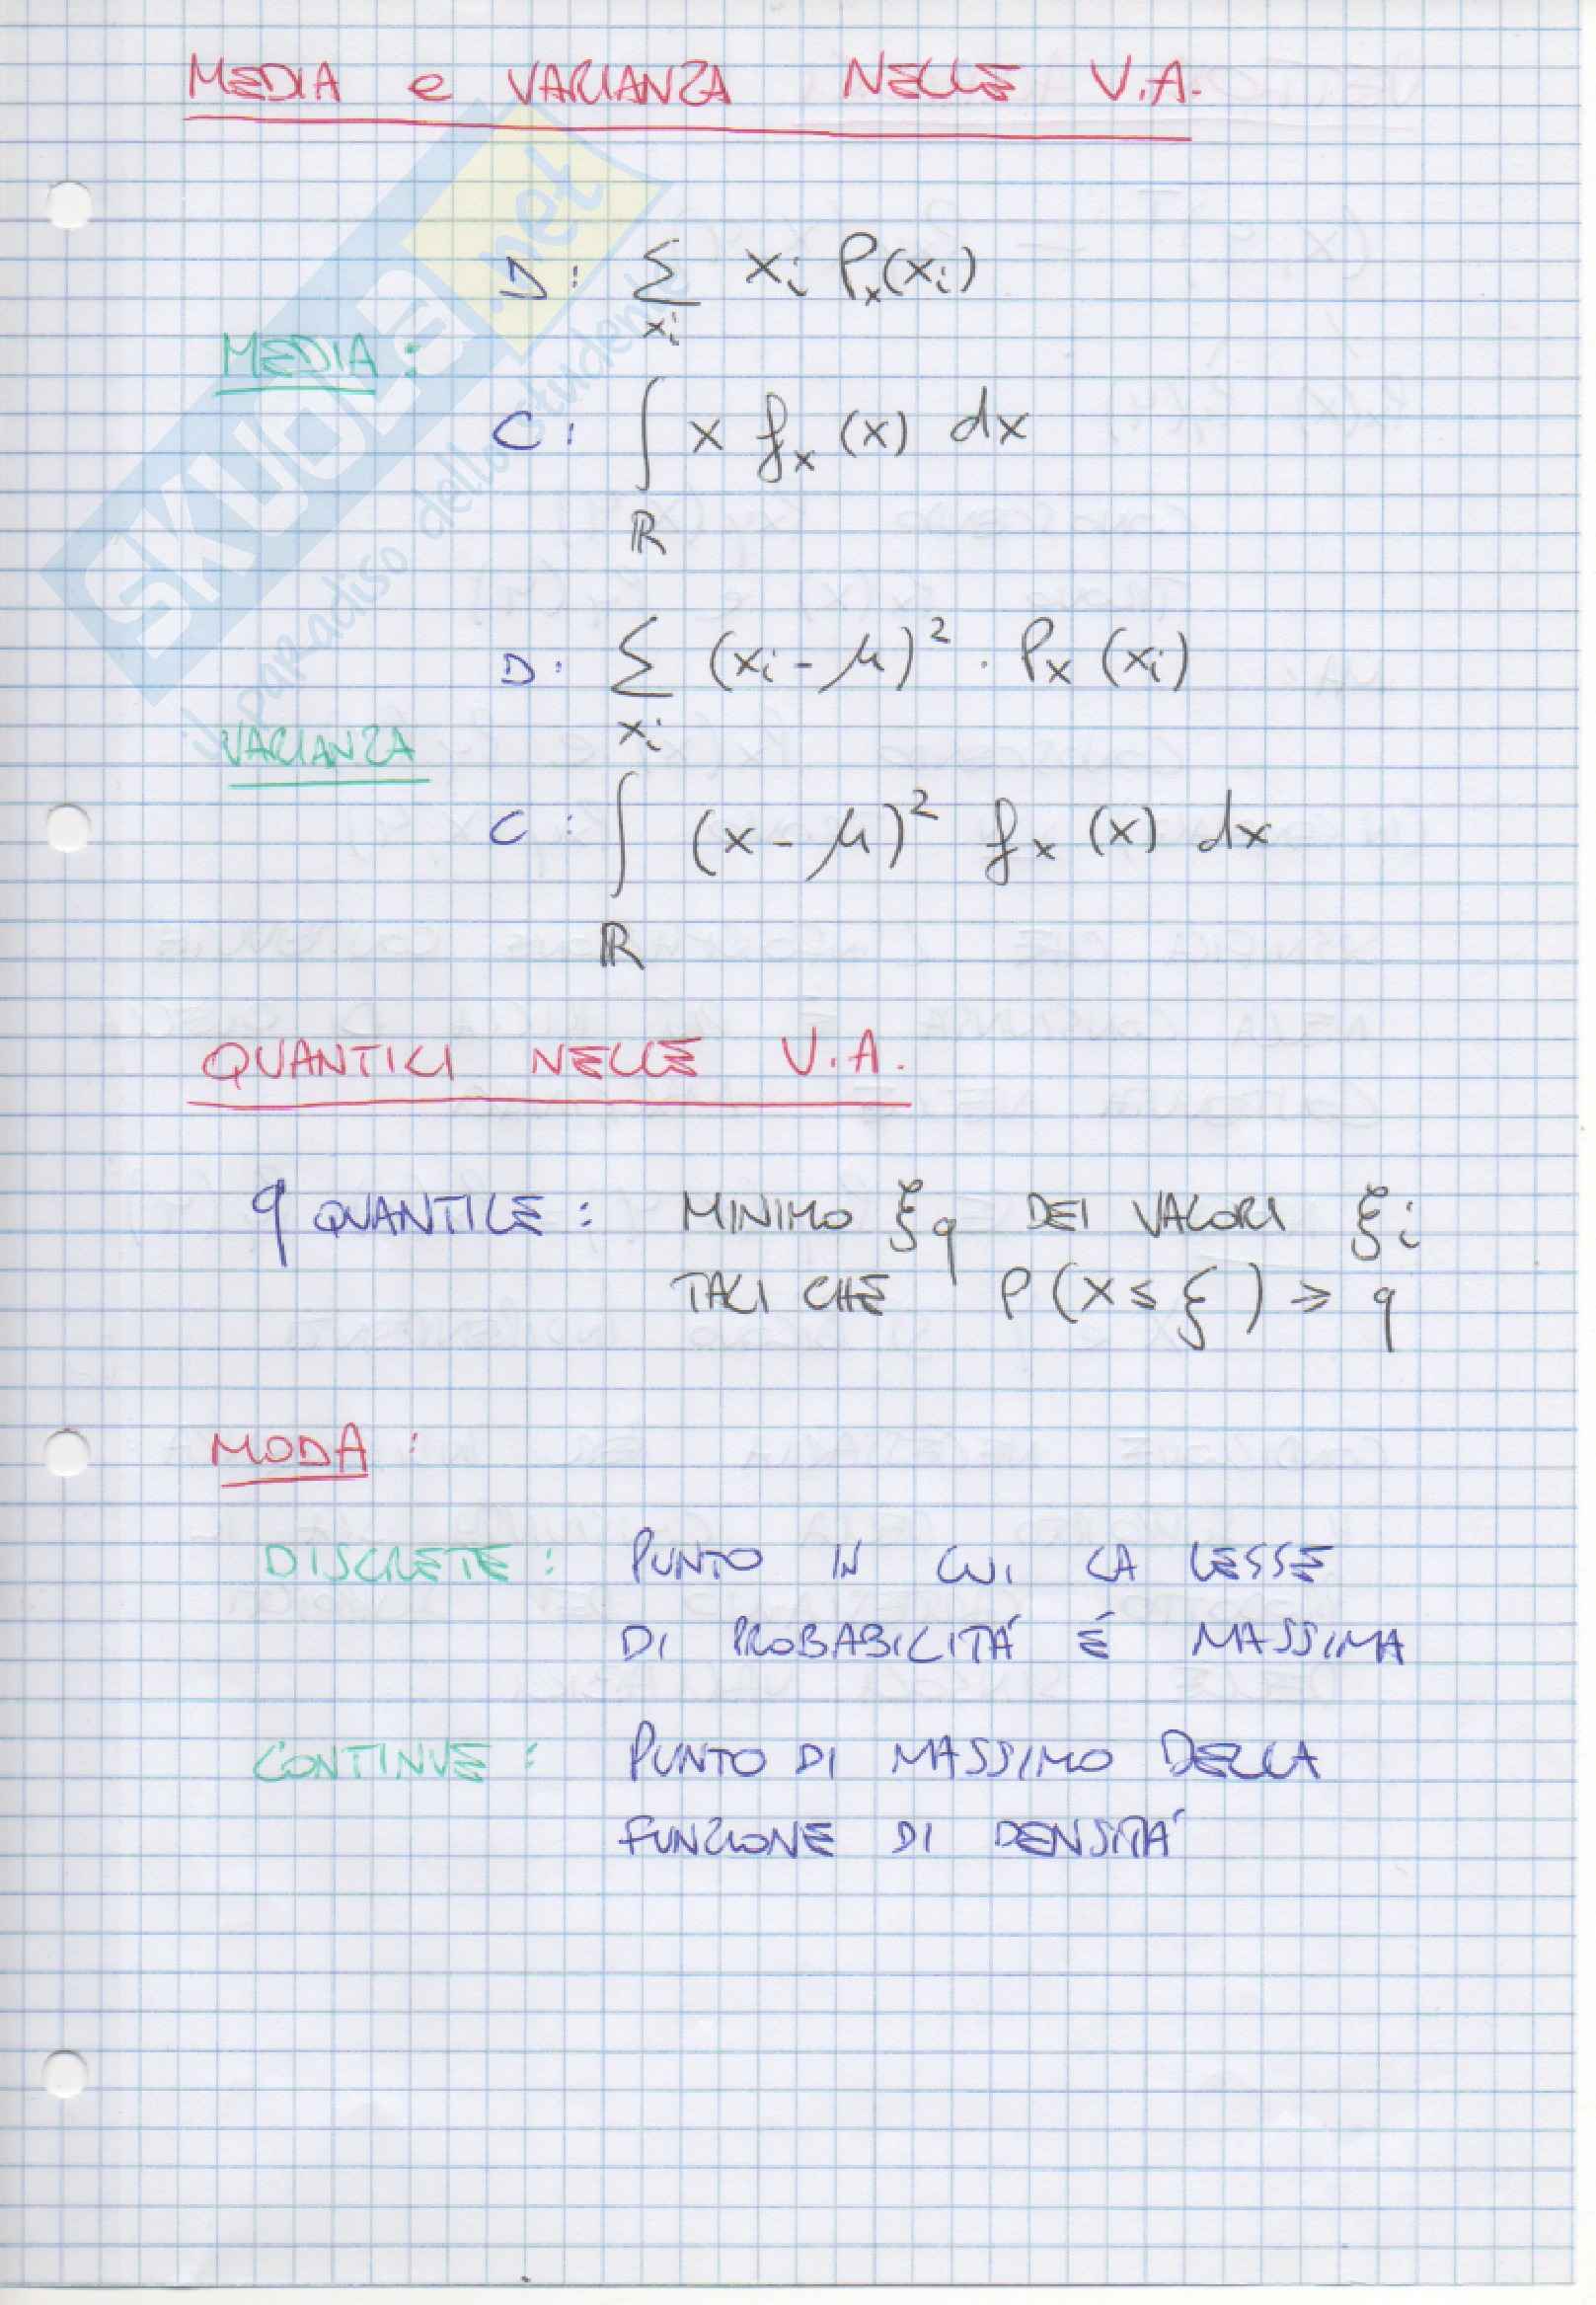 MEDIA e VARIANZA NELLE V.A.
D: ∑ xi Px(xi)
xi
MEDIA:
C: ∫ x fx (x) dx
ℝ
D: ∑ (xi - μ)² · Px (xi)
xi
VARIANZA
C: ∫ (x - μ)² fx (x) dx
ℝ
QUANTILI NELLE V.A.
q QUANTILE: MINIMO ξq DEI VALORI ξi
TALI CHE P(X ≤ ξ) ≥ q
MODA:
DISCRETE: PUNTO IN CUI LA LEGGE
DI PROBABILITÁ É MASSIMA
CONTINUE: PUNTO DI MASSIMO DELLA
FUNZIONE DI DENSITÁ
SKUOLA.net
il paradiso dello studente